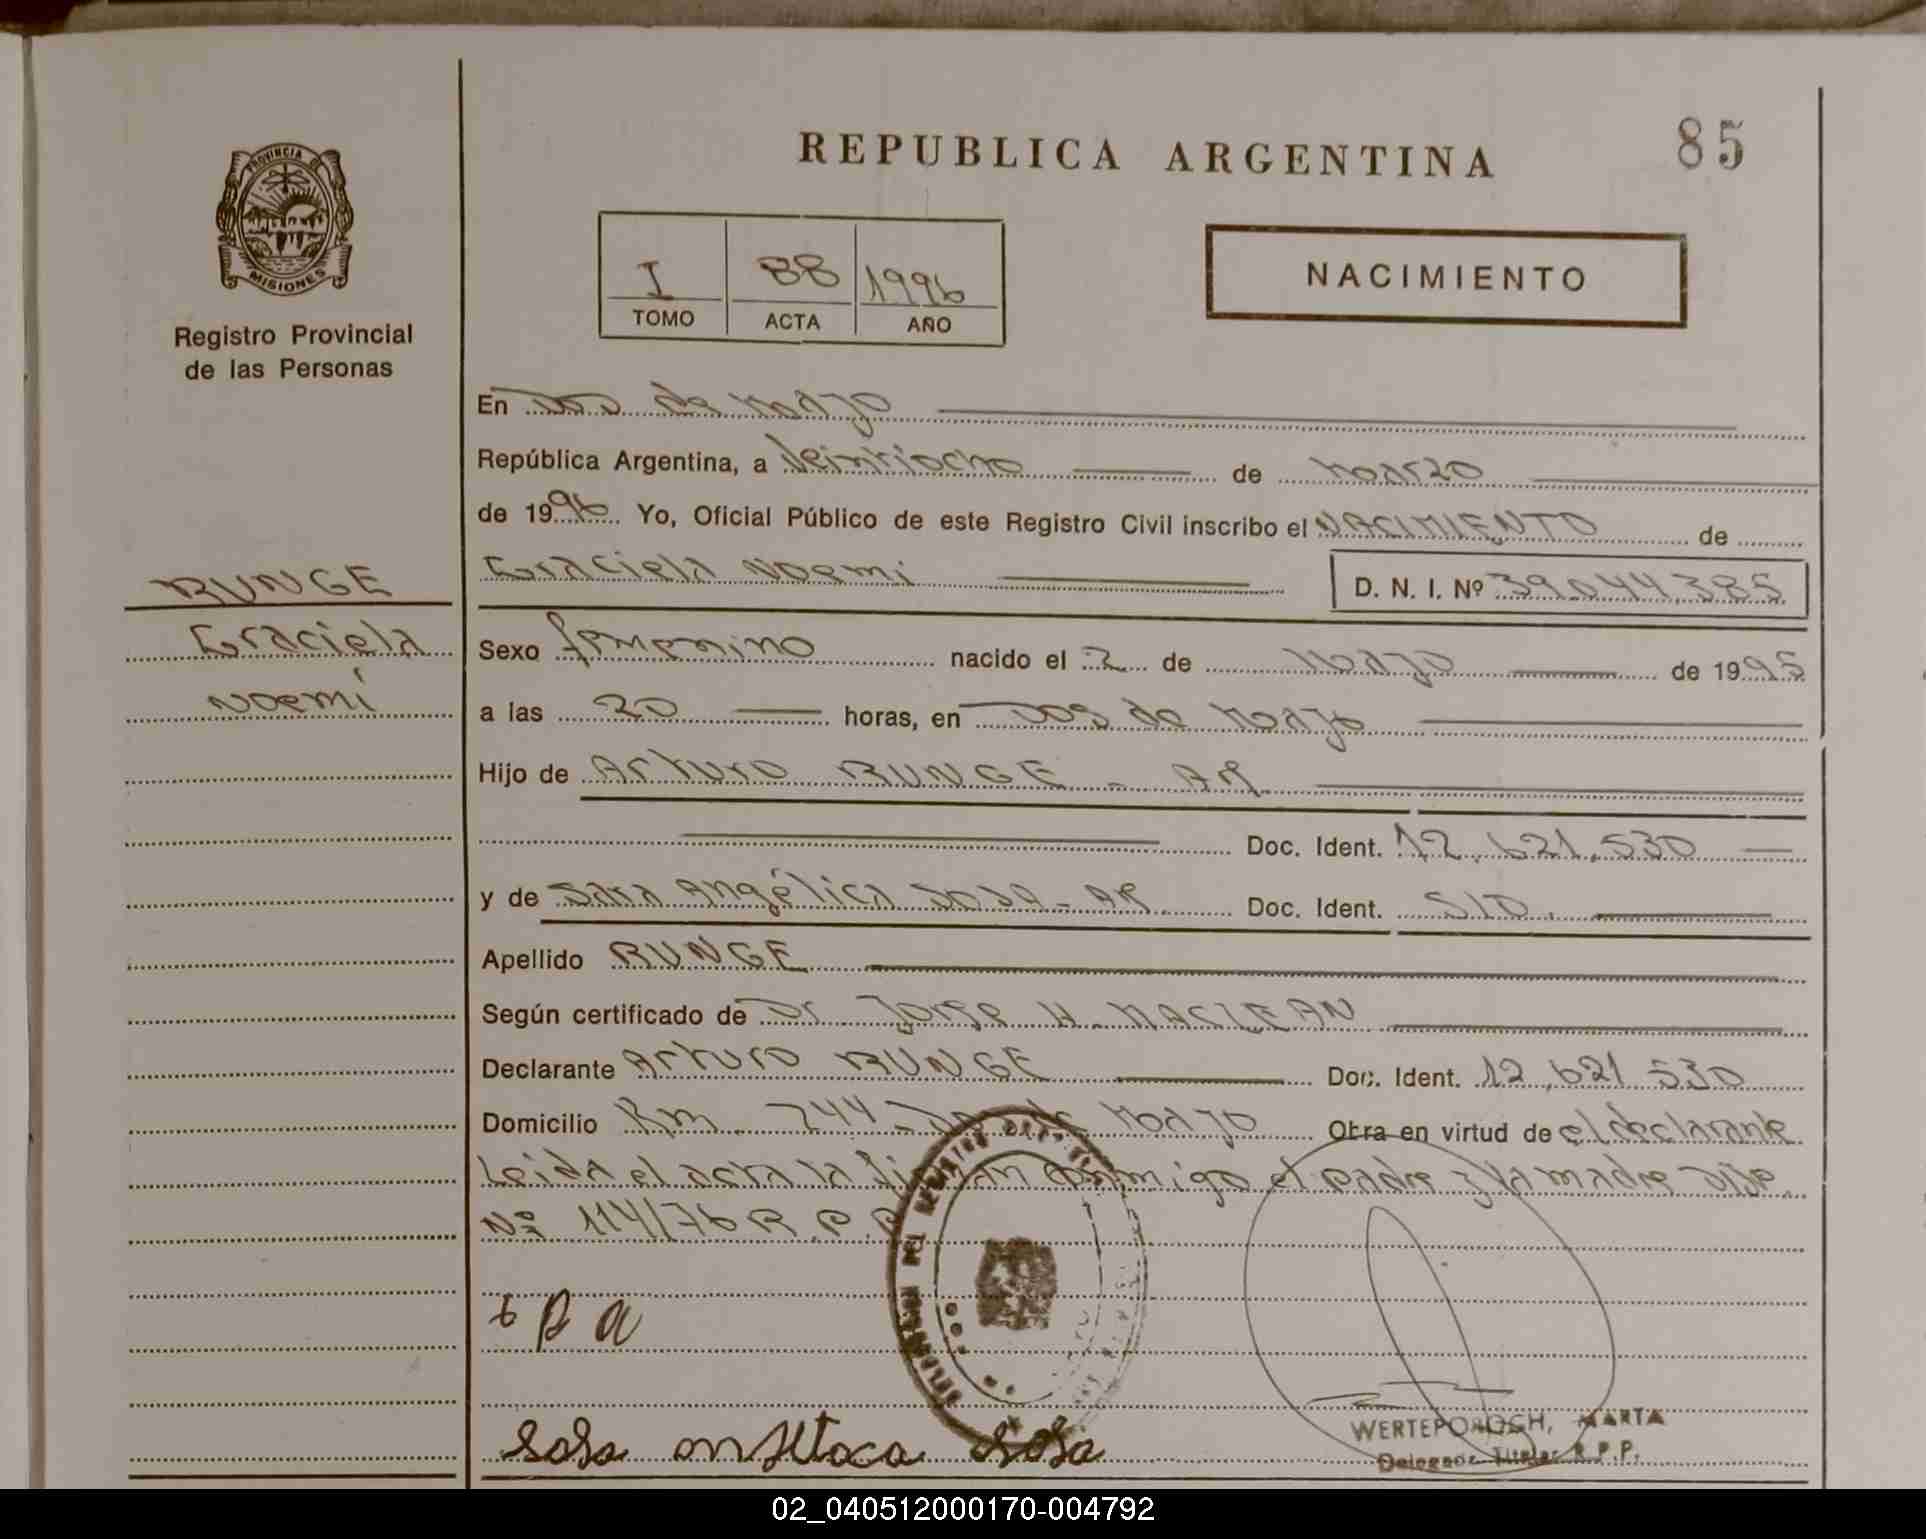 REPUBLICA ARGENTINA
85
PROVINCIA D
MISIONES
Registro Provincial
de las Personas
I 88 1996
TOMO ACTA AÑO
NACIMIENTO
En Dos de Mayo
República Argentina, a Veintiocho de Marzo
de 1996 Yo, Oficial Público de este Registro Civil inscribo el NACIMIENTO de
Graciela Noemi D. N. I. Nº 39.044.385
RUNGE
Graciela
Noemí
Sexo femenino nacido el 2 de Mayo de 1995
a las 20 horas, en Dos de Mayo
Hijo de Arturo RUNGE - AR
Doc. Ident. 12.621.530
y de Sara Angélica SOSA - AR. Doc. Ident. S/D.
Apellido RUNGE
Según certificado de Dr Jorge H. MACLEAN
Declarante Arturo RUNGE Doc. Ident. 12.621.530
Domicilio Km. 244 - Dos de Mayo Obra en virtud de el declarante
Leida el acta la firman conmigo el padre y la madre Disp.
Nº 114/76 R.P.P
WERTEPOROCH, MARTA
Delegada Titular R.P.P.
02_040512000170-004792